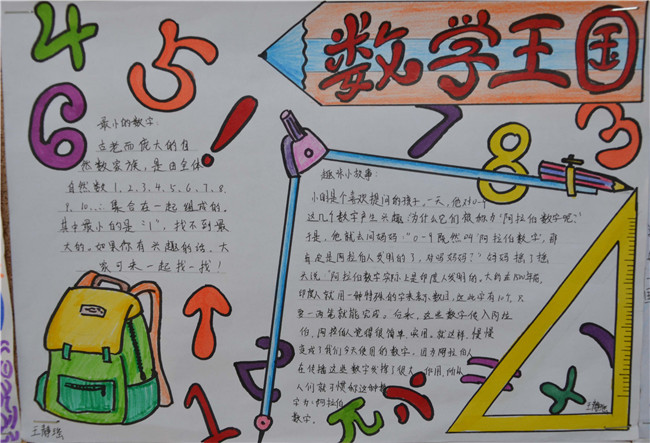 数学王国
4
5
6
!
7
8
3
最小的数字:
古老而庞大的自
然数家族,是由全体
自然数1、2、3、4、5、6、7、8、
9、10…集合在一起组成的。
其中最小的是“1”,找不到最
大的。如果你有兴趣的话,大
家可来一起找一找!
趣味小故事:
小明是个喜欢提问的孩子。一天,他对0-9
这几个数字产生兴趣:为什么它们被称为“阿拉伯数字呢?”
于是,他就去问妈妈:“0-9既然叫“阿拉伯数字”,那
肯定是阿拉伯人发明的了,对吗妈妈?”妈妈摇了摇
头说:“阿拉伯数字实际上是印度人发明的。大约在1500年前,
印度人就用一种特殊的字来表示数目,这些字有10个,只
要一两笔就能写成。后来,这些数字传入阿拉
伯,阿拉伯人觉得很简单、实用。就这样,慢慢
变成了我们今天使用的数字。因为阿拉伯人
在传播这些数字发挥了很大作用,所以
人们就习惯称这种数
字为“阿拉伯
数字。
1
2
王静
王静